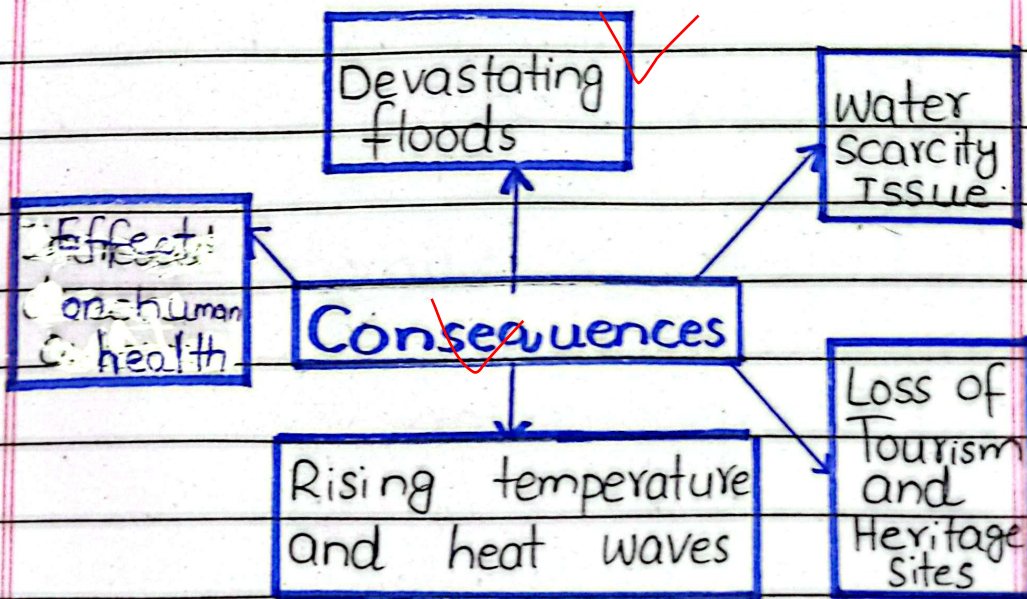 Devastating
floods
Water
Scarcity
Issue
Effect
on human
health
Consequences
Rising temperature
and heat waves
Loss of
Tourism
and
Heritage
Sites